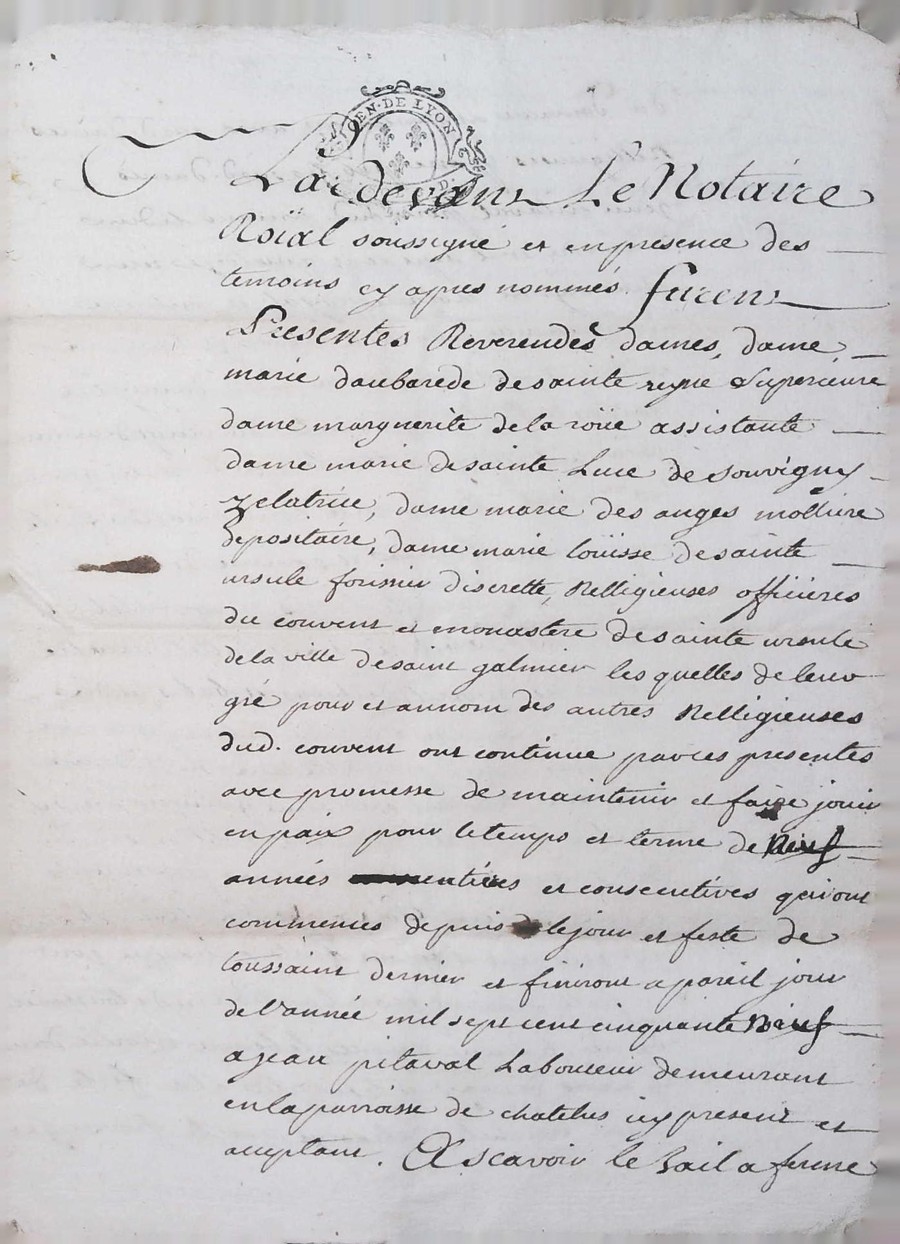 GEN. DE LYON
Pardevant Le Notaire
Roïal soussigné et en presence des
temoins cy apres nommés furent
Presentes Reverendes dames, dame
marie daubarede de sainte reyne Superieure
dame marguerite de la roüe assistante
dame marie de sainte Luce de souvigny
zelatrice, dame marie des anges mollière
depositaire, dame marie loüisse de sainte
ursule forissier discrette, Relligieuses officieres
du couvent et monastère de sainte ursule
de la ville de saint galmier les quelles de leur
gré pour et au nom des autres Relligieuses
dud. couvent ont continué par ces presentes
avec promesse de maintenir et faire jouir
en paix pour le temps et terme de Neuf
années entières et consecutives qui ont
commencés depuis le jour et feste de
toussaint dernier et finiront a pareil jour
de l'année mil sept cent cinquante Neuf
a jean pitaval Laboureur demeurant
en la parroisse de chatelus icy present et
acceptant. A Scavoir le Bail a ferme